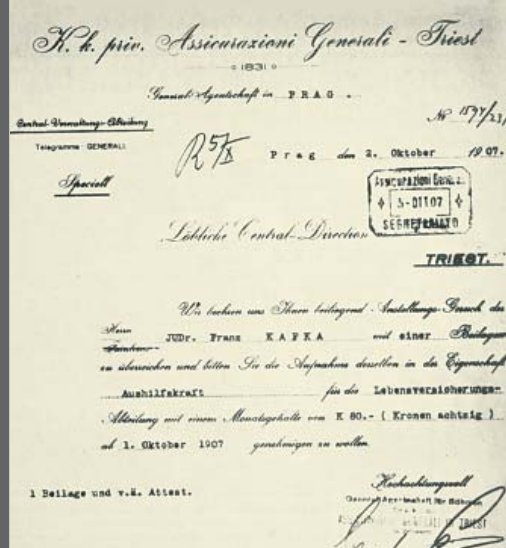 K. k. priv. Assicurazioni Generali - Triest
1831
General-Agentschaft in PRAG.
Central-Verwaltungs-Abteilung
№ 1594/23/
Telegramme: GENERALI
R 5/X
Prag den 2. Oktober 1907.
Speciell
Assicurazioni Generali
5-OTT07
SEGRETARIATO
Löbliche Central-Direction
TRIEST.
Wir beehren uns Ihnen beiliegend Anstellungs-Gesuch des
Herrn
Fräulein
JUDr. Franz KAFKA mit einer Beilage
zu überreichen und bitten Sie die Aufnahme desselben in der Eigenschaft
Aushilfskraft für die Lebensversicherungs-
Abteilung mit einem Monatsgehalte von K 80.- ( Kronen achtzig )
ab 1. Oktober 1907 genehmigen zu wollen.
Hochachtungsvoll
General-Agentschaft für Böhmen
1 Beilage und v.Ä. Attest.
ASSICURAZIONI GENERALI IN TRIEST